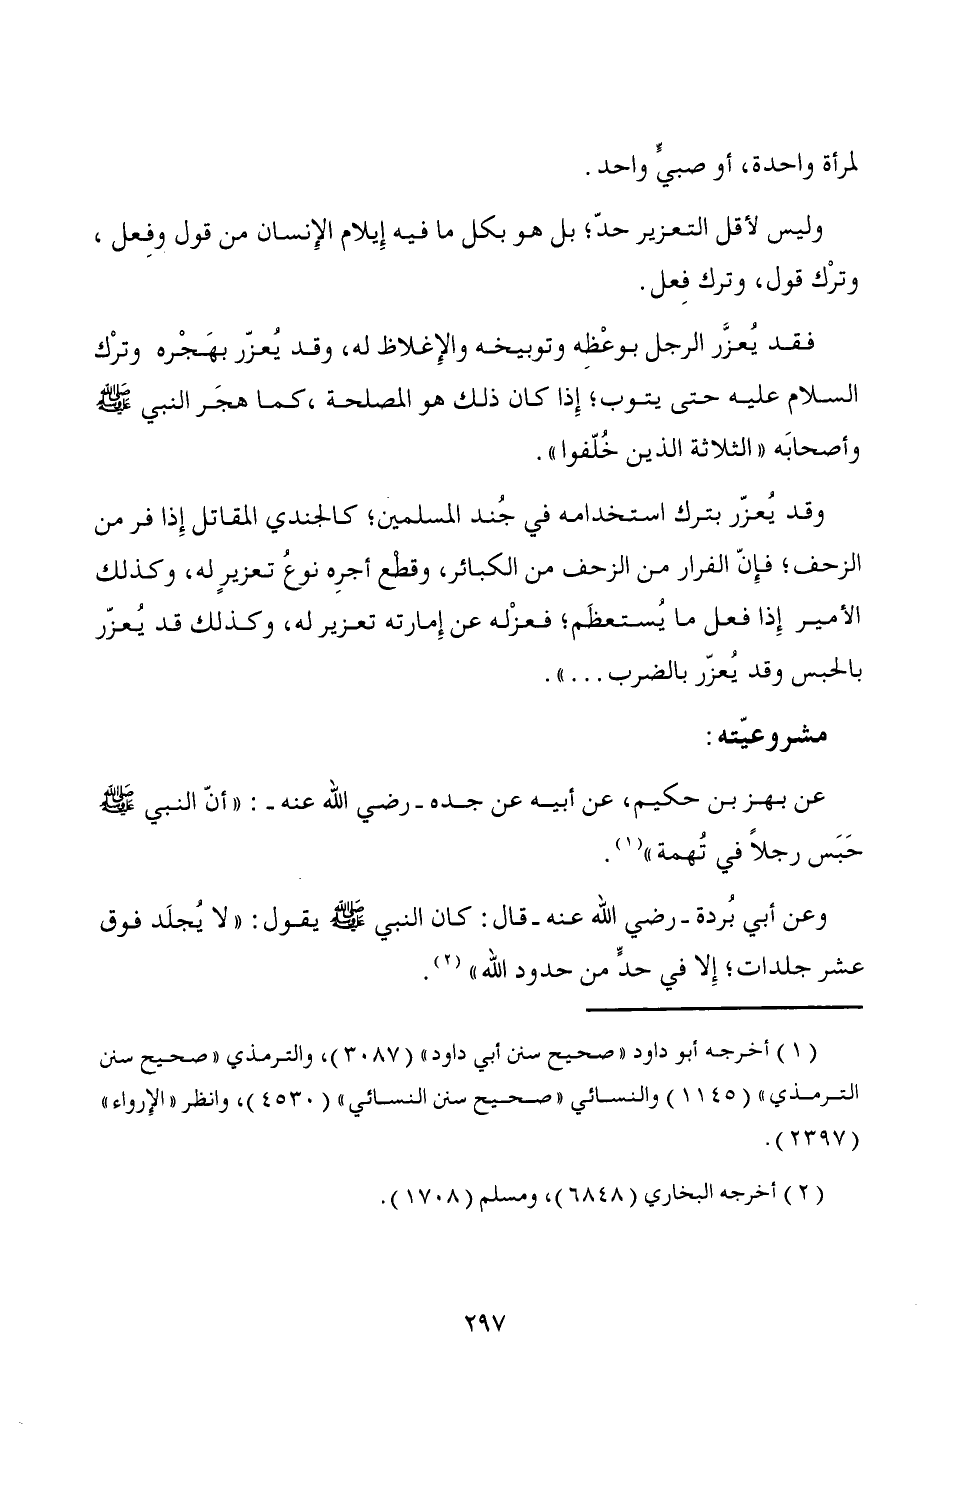 لمرأة واحدة، أو صبيٍّ واحد .
وليس لأقل التعزير حدّ؛ بل هو بكل ما فيه إِيلام الإِنسان من قول وفِعل ،
وترْك قول، وترك فِعل.
فقد يُعزَّر الرجل بوعْظِه وتوبيخه والإِغلاظ له، وقد يُعزّر بهَجْره وترْك
السلام عليه حتى يتوب؛ إِذا كان ذلك هو المصلحة ،كما هجَر النبي ﷺ
وأصحابَه «الثلاثة الذين خُلّفوا».
وقد يُعزّر بترك استخدامه في جُند المسلمين؛ كالجندي المقاتل إِذا فر من
الزحف؛ فإِنّ الفرار من الزحف من الكبائر، وقطْع أجرِه نوعُ تعزيرٍ له، وكذلك
الأمير إِذا فعل ما يُستعظَم؛ فعزْله عن إِمارته تعزير له، وكذلك قد يُعزّر
بالحبس وقد يُعزّر بالضرب ...».
مشروعيّته :
عن بهز بن حكيم، عن أبيه عن جده ـ رضي الله عنه ـ : «أنّ النبي ﷺ
حَبَس رجلاً في تُهمة»(١).
وعن أبي بُردة ـ رضي الله عنه ـ قال: كان النبي ﷺ يقول: «لا يُجلَد فوق
عشر جلدات؛ إِلا في حدٍّ من حدود الله» (٢).
(١) أخرجه أبو داود «صحيح سنن أبي داود» (٣٠٨٧)، والترمذي «صحيح سنن
الترمذي» (١١٤٥) والنسائي «صحيح سنن النسائي» (٤٥٣٠)، وانظر «الإِرواء»
(٢٣٩٧).
(٢) أخرجه البخاري (٦٨٤٨)، ومسلم (١٧٠٨).
٢٩٧